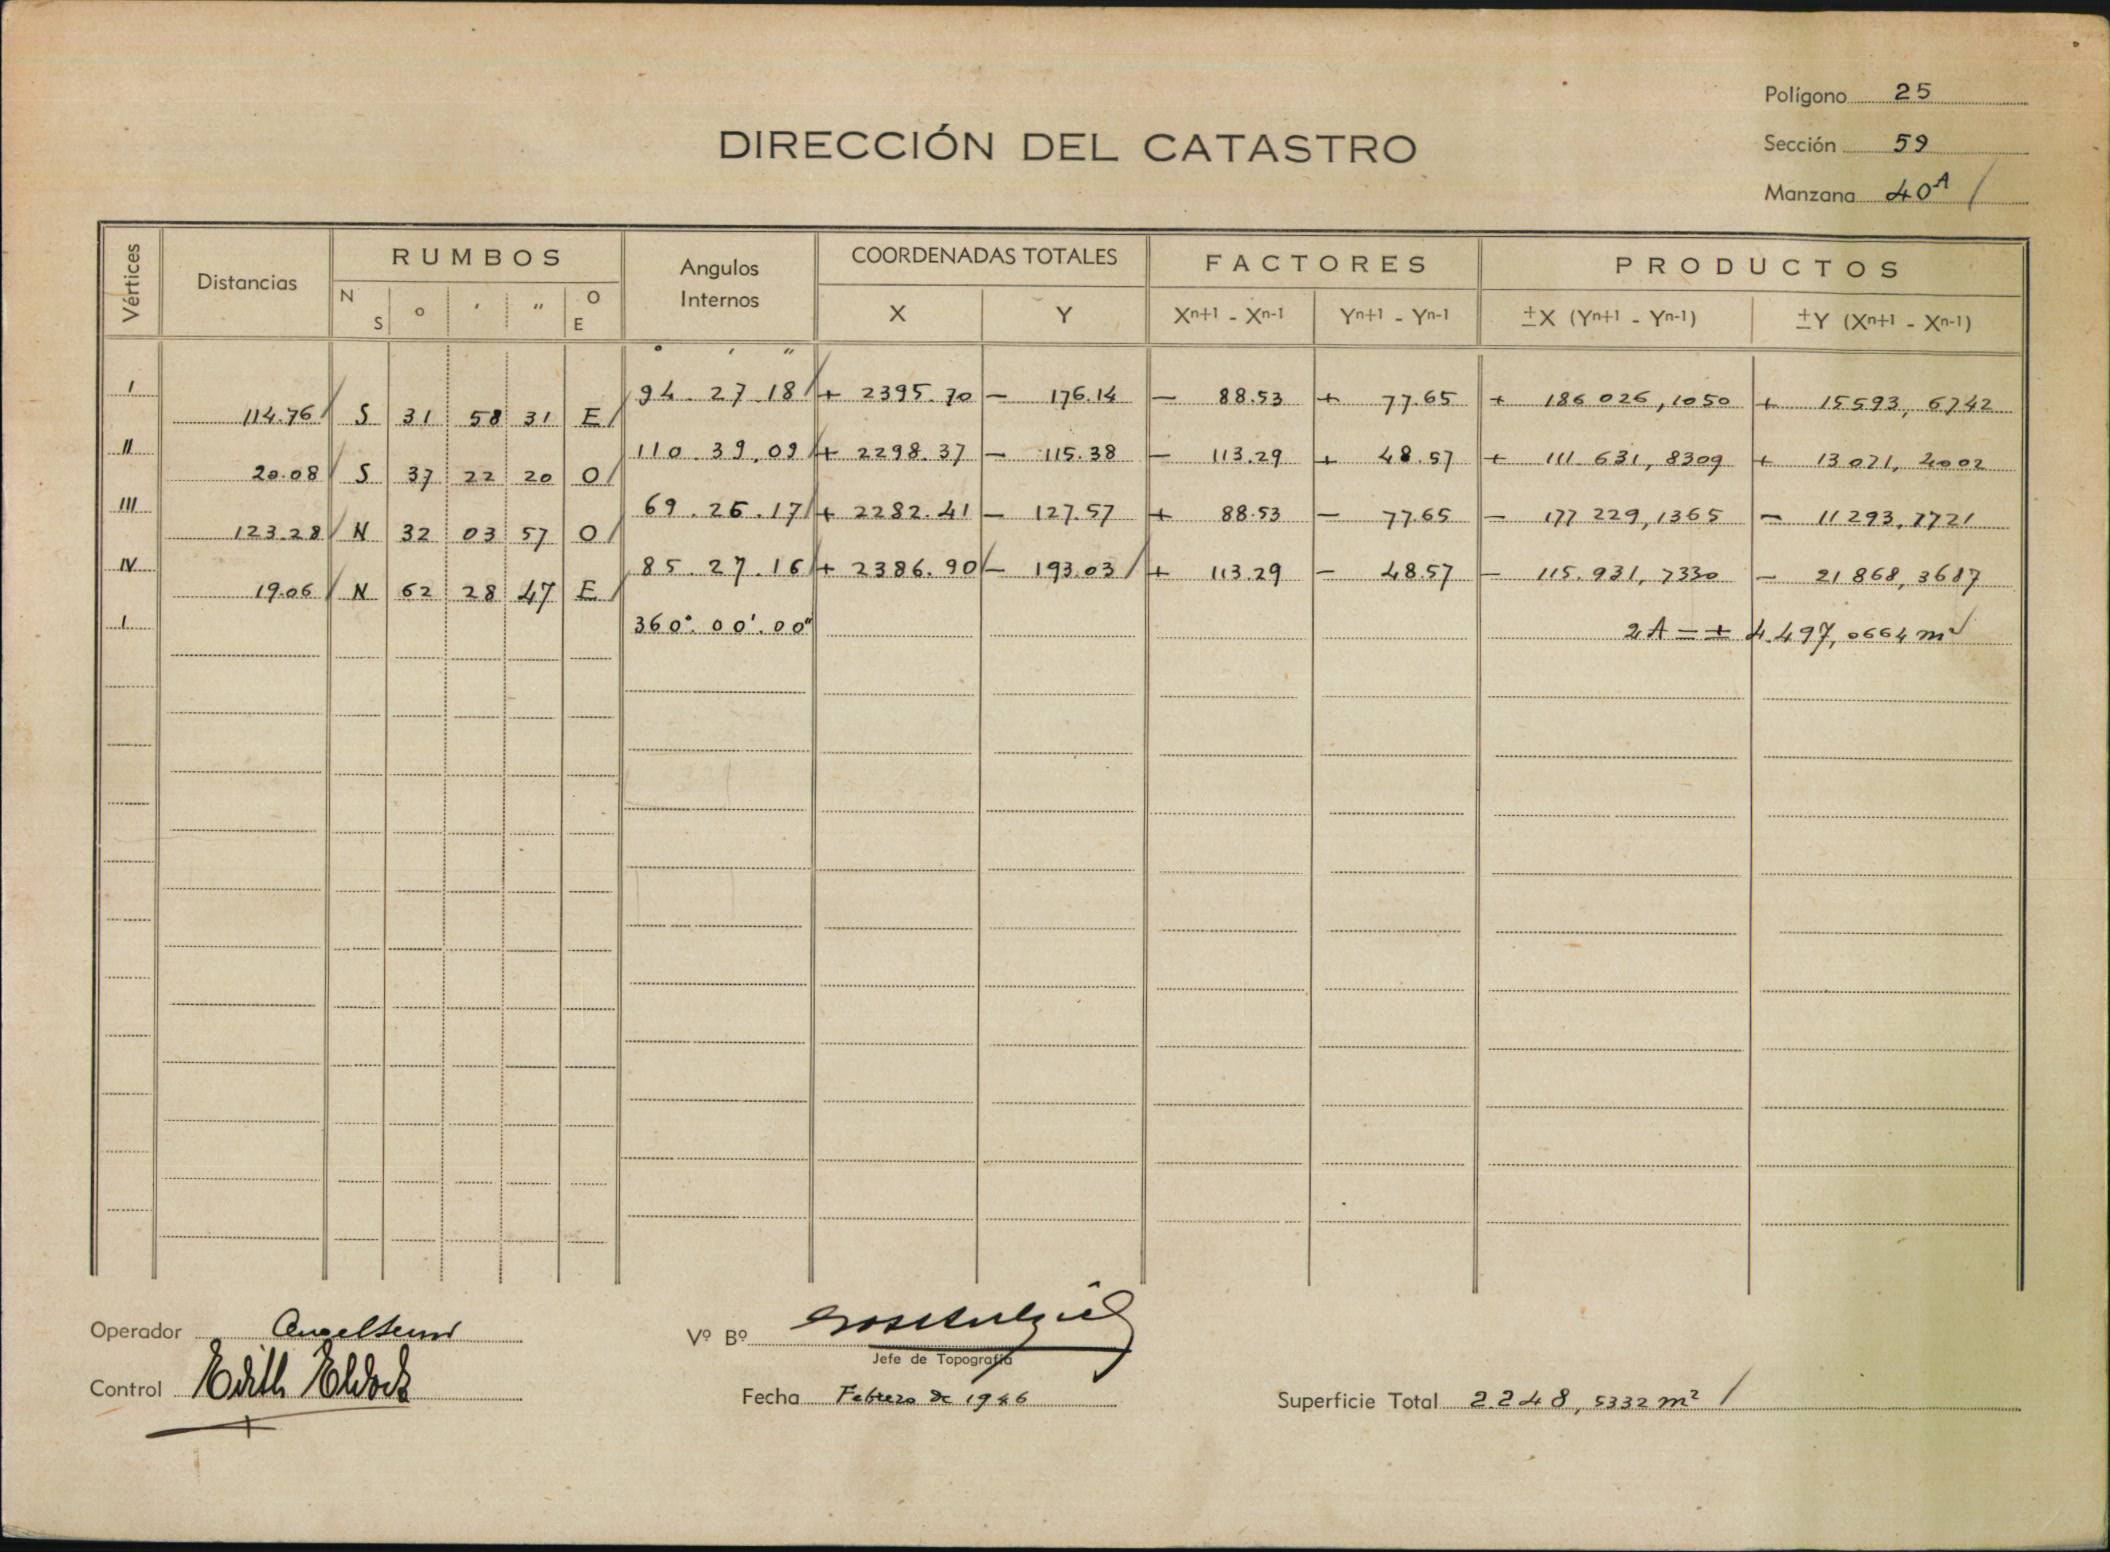 Polígono 25
DIRECCIÓN DEL CATASTRO
Sección 59
Manzana 40A /
Vértices Distancias RUMBOS Angulos Internos COORDENADAS TOTALES FACTORES PRODUCTOS
N S ° ' " O E X Y Xn+1 - Xn-1 Yn+1 - Yn-1 ±X (Yn+1 - Yn-1) ±Y (Xn+1 - Xn-1)
° ' "
I 94. 27. 18 + 2395.70 - 176.14 - 88.53 + 77.65 + 186 026,1050 + 15593, 6742
114.76 S 31 58 31 E
II 110. 39. 09 + 2298.37 - 115.38 - 113.29 + 48.57 + 111.631, 8309 + 13 071, 4002
20.08 S 37 22 20 O
III 69. 26. 17 + 2282.41 - 127.57 + 88.53 - 77.65 - 177 229,1365 - 11293,7721
123.28 N 32 03 57 O
IV 85. 27. 16 + 2386.90 - 193.03 + 113.29 - 48.57 - 115.931, 7330 - 21 868, 3687
19.06 N 62 28 47 E
I 360°. 00'. 00" 2A = + 4.497, 0664 m²
Operador
Vº Bº
Jefe de Topografía
Control Edith
Fecha Febrero de 1946
Superficie Total 2.248, 5332 m² /